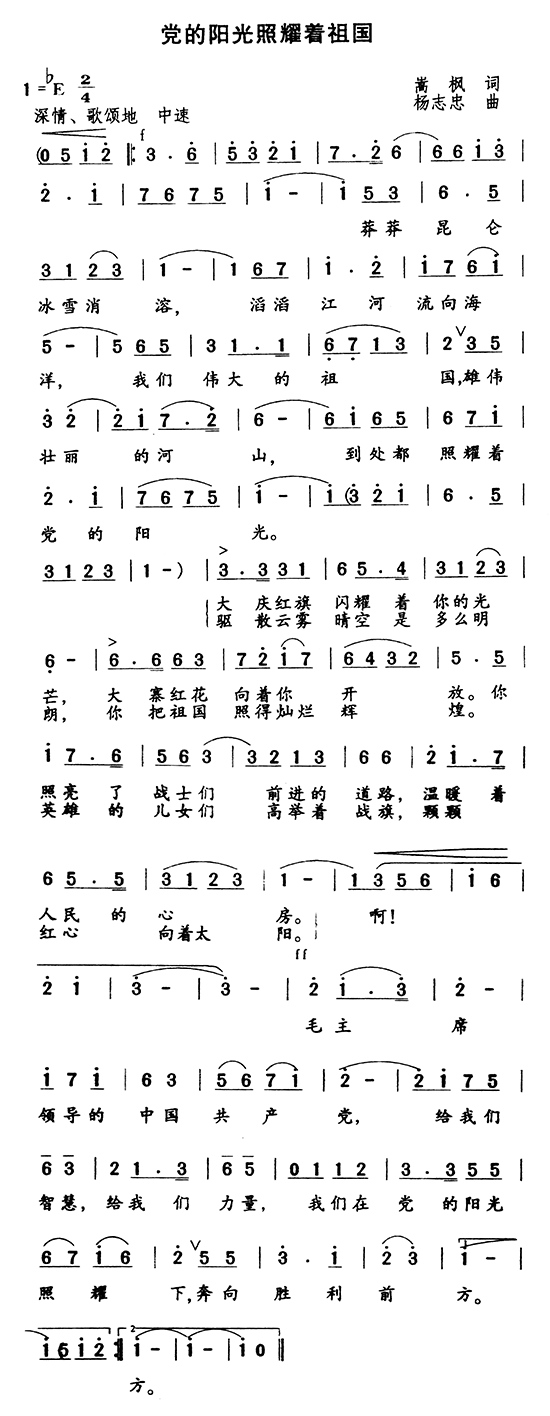 党的阳光照耀着祖国
1=♭E 2/4
嵩枫 词
深情、歌颂地 中速
杨志忠 曲
f
(0 5 i 2 ‖: 3 . 6 | 5 3 2 1 | 7 . 2 6 | 6 6 i 3 |
2 . i | 7 6 7 5 | i - | i 5 3 | 6 . 5 |
莽莽 昆 仑
3 1 2 3 | 1 - | 1 6 7 | i . 2 | i 7 6 i |
冰雪消 溶, 滔滔 江 河 流向海
5 - | 5 6 5 | 3 1 . 1 | 6 7 1 3 | 2 ∨ 3 5 |
洋, 我们 伟大 的 祖 国,雄伟
3 2 | 2 i 7 . 2 | 6 - | 6 i 6 5 | 6 7 i |
壮丽 的河 山, 到处都 照耀着
2 . i | 7 6 7 5 | i - | i (3 2 i | 6 . 5 |
党 的 阳 光。
3 1 2 3 | 1 - ) | 3 . 3 3 1 | 6 5 . 4 | 3 1 2 3 |
大 庆红旗 闪耀 着 你的光
驱 散云雾 晴空 是 多么明
6 - | 6 . 6 6 3 | 7 2 i 7 | 6 4 3 2 | 5 . 5 |
芒, 大 寨红花 向着你 开 放。你
朗, 你 把祖国 照得灿烂 辉 煌。
i 7 . 6 | 5 6 3 | 3 2 1 3 | 6 6 | 2 i . 7 |
照亮 了 战士们 前进的 道路, 温暖 着
英雄 的 儿女们 高举着 战旗, 颗颗
6 5 . 5 | 3 1 2 3 | 1 - | 1 3 5 6 | i 6 |
人民 的 心 房。 啊!
红心 向着太 阳。
ff
2 i | 3 - | 3 - | 2 i . 3 | 2 - |
毛 主 席
i 7 i | 6 3 | 5 6 7 i | 2 - | 2 i 7 5 |
领导的 中国 共 产 党, 给我们
6 3 | 2 1 . 3 | 6 5 | 0 1 1 2 | 3 . 3 5 5 |
智慧, 给我 们 力量, 我们在 党 的阳光
6 7 i 6 | 2 ∨ 5 5 | 3 . i | 2 3 | i - |
照 耀 下,奔向 胜 利 前 方。
i (5 i 2 :‖ 2 i - | i - | i 0 ‖
方。